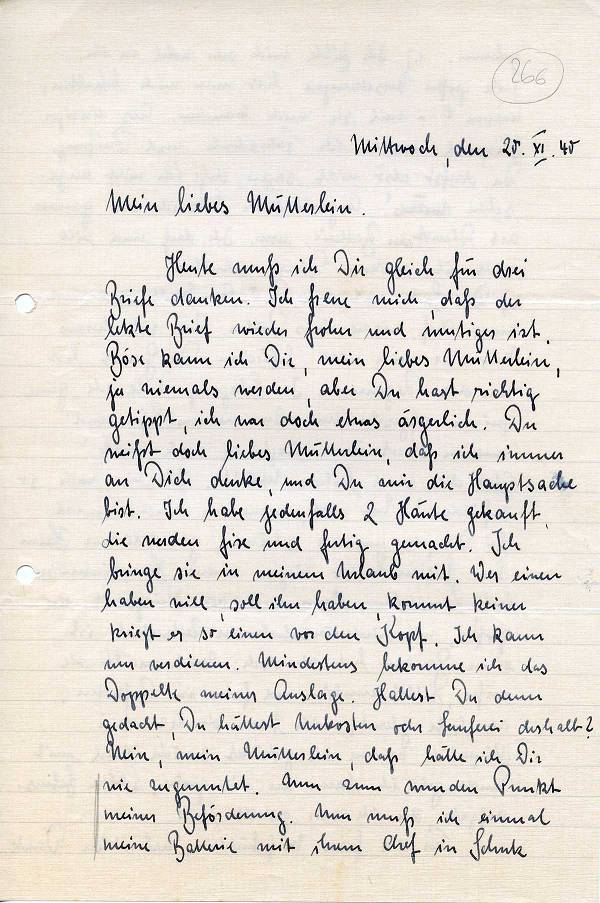 266
Mittwoch, den 20. XI. 40
Mein liebes Mütterlein.
Heute muß ich Dir gleich für drei
Briefe danken. Ich freue mich, daß der
letzte Brief wieder froher und mutiger ist.
Böse kann ich Dir, mein liebes Mütterlein,
ja niemals werden, aber Du hast richtig
getippt, ich war doch etwas ärgerlich. Du
weißt doch liebes Mütterlein, daß ich immer
an Dich denke, und Du mir die Hauptsache
bist. Ich habe jedenfalls 2 Häute gekauft,
die werden fixe und fertig gemacht. Ich
bringe sie in meinem Urlaub mit. Wer einen
haben will, soll ihn haben, kommt keiner
kriegt er so einen vor den Kopf. Ich kann
nur verdienen. Mindestens bekomme ich das
Doppelte meiner Auslage. Hattest Du denn
gedacht, Du hättest Unkosten oder Lauferei deshalb?
Nein, mein Mütterlein, daß hätte ich Dir
nie zugemutet. Nun zum wunden Punkt
meiner Beförderung. Nun muß ich einmal
meine Batterie mit ihrem Chef in Schutz